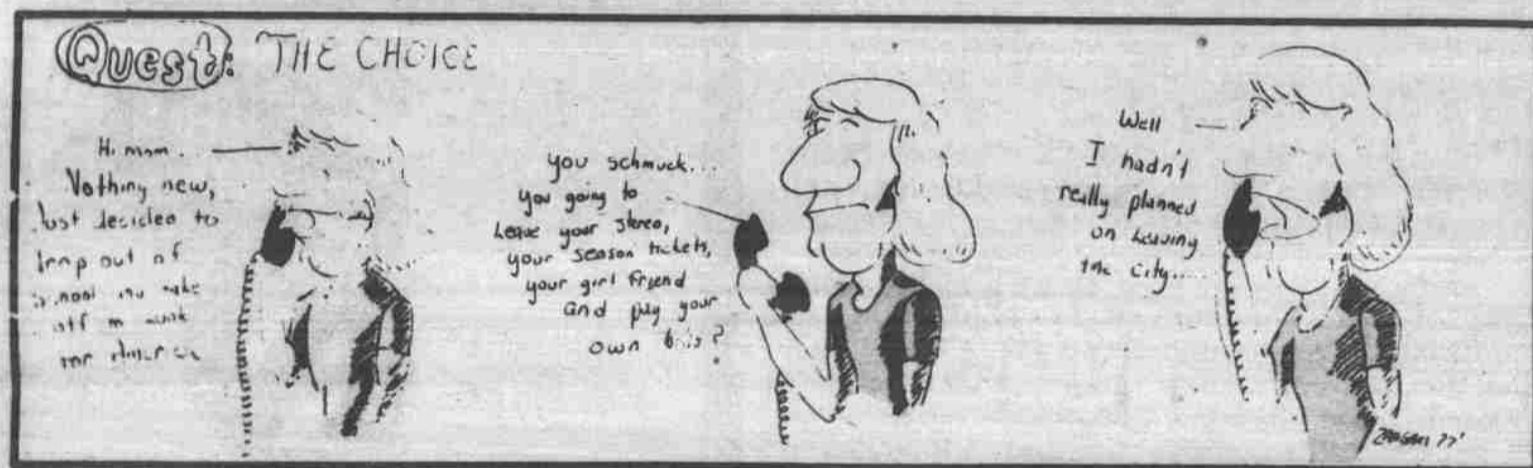 Quest: THE CHOICE
Hi mom..
Nothing new,
Just decided to
drop out of
school and take
off
you schmuck...
you going to
Leave your stereo,
your season tickets,
your girl friend
and pay your
own
?
Well
I hadn't
really planned
on Leaving
the city....
77'